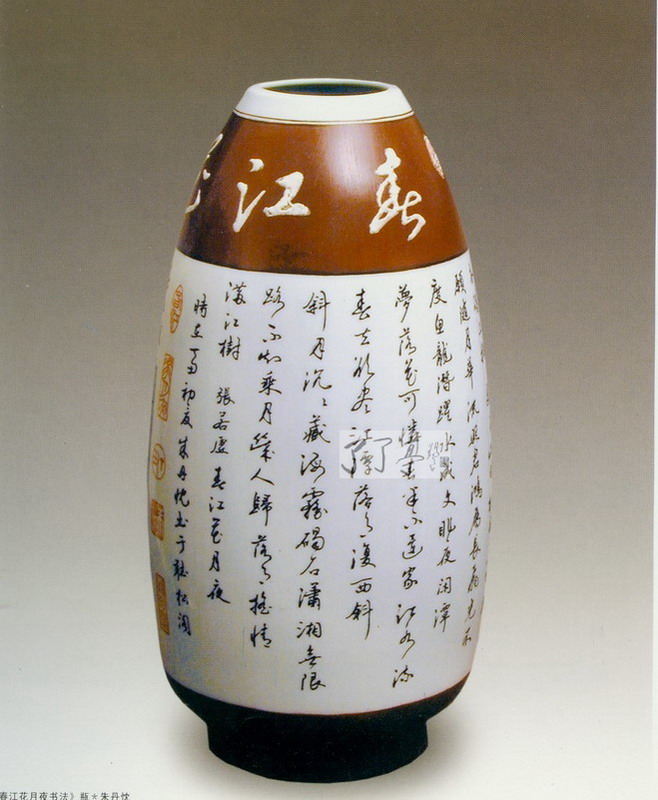 春江花
願隨月華流照君鴻雁長飛光不
度魚龍潛躍水成文昨夜閑潭
夢落花可憐春半不還家江水流
春去欲盡江潭落月復西斜
斜月沉〻藏海霧碣石瀟湘無限
路不知乘月幾人歸落月搖情
滿江樹 張若虛 春江花月夜
時在丁亥初夏朱丹忱書于聽松閣
了了
春江花月夜书法》瓶*朱丹忱